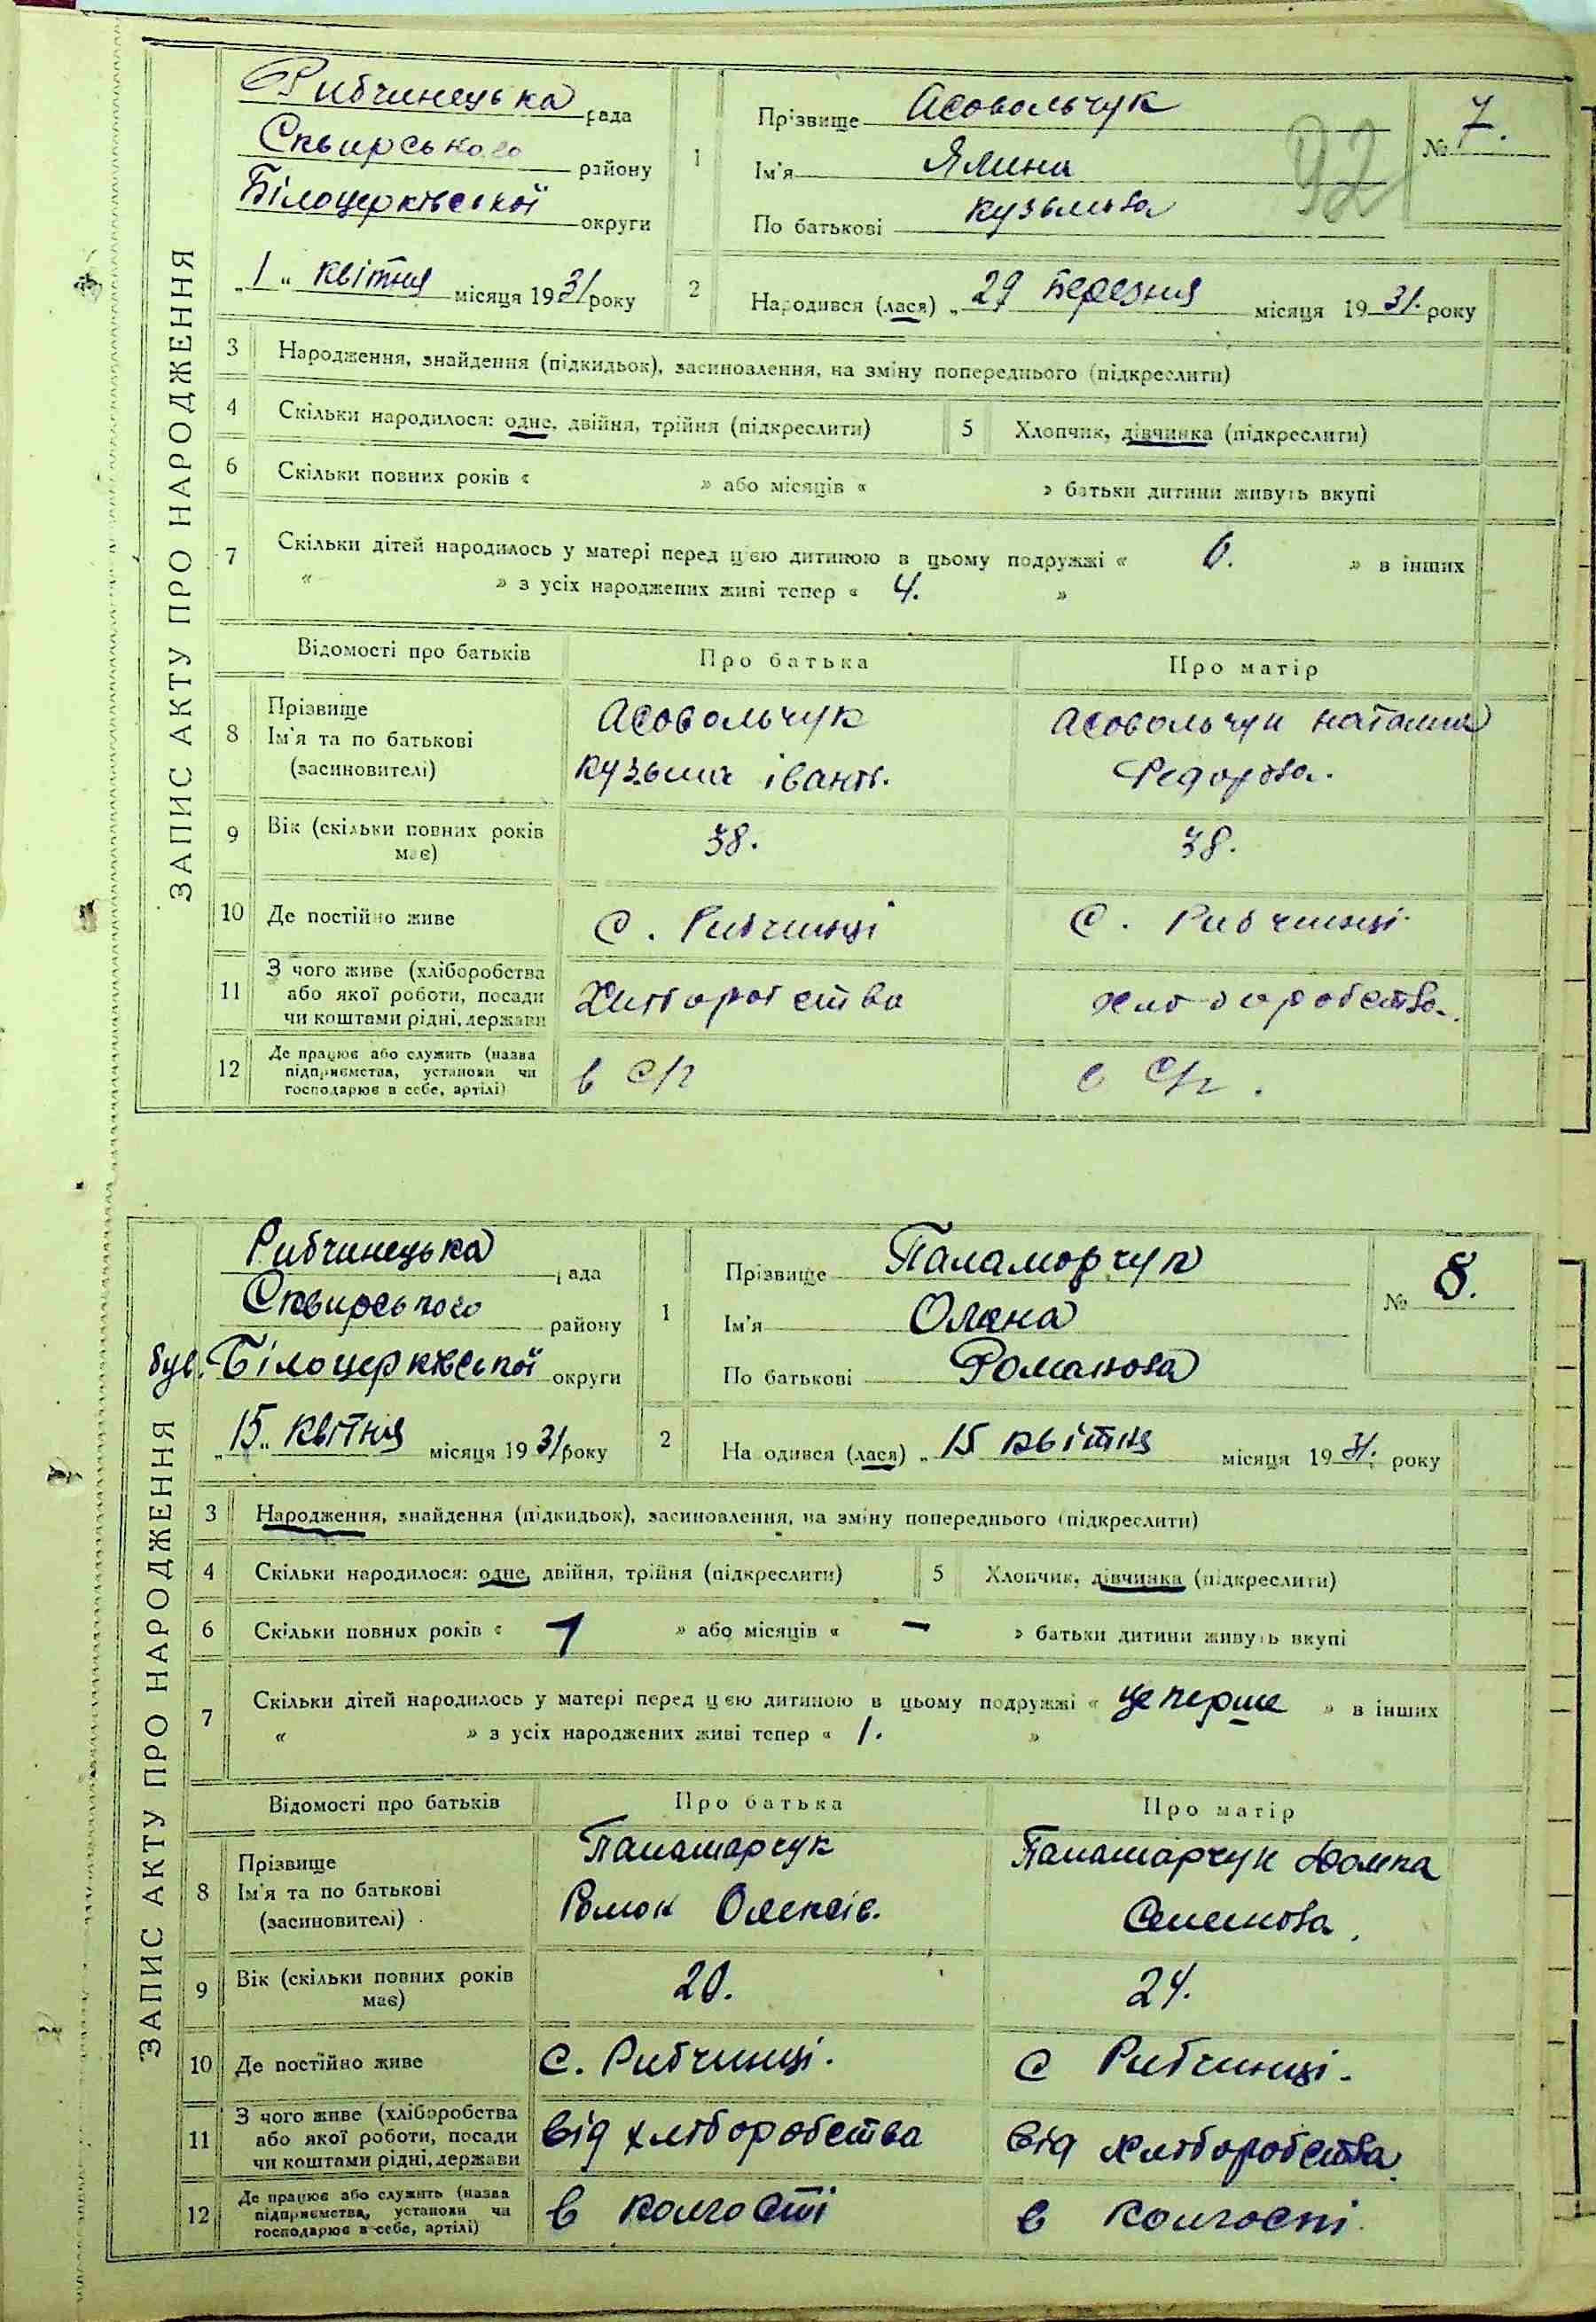 ЗАПИС АКТУ ПРО НАРОДЖЕННЯ
Рибчинецька рада
Сквирського району
Білоцерківської округи
„1“ квітня місяця 1931 року
1
Прізвище Асовольчук
Ім'я Ялина
По батькові Кузьмова
№ 7.
92
2 Народився (лася) „29 березня місяця 1931. року
3 Народження, знайдення (підкидьок), засиновлення, на зміну попереднього (підкреслити)
4 Скільки народилося: одне, двійня, трійня (підкреслити) 5 Хлопчик, дівчинка (підкреслити)
6 Скільки повних років « » або місяців « » батьки дитини живуть вкупі
7 Скільки дітей народилось у матері перед цією дитиною в цьому подружжі « 6. » в інших
« » з усіх народжених живі тепер « 4. »
Відомості про батьків Про батька Про матір
8 Прізвище Ім'я та по батькові (засиновителі)
Асовольчук Кузьма Іванів.
Асовольчук Наталия Федорова.
9 Вік (скільки повних років має) 38. 38.
10 Де постійно живе с. Рибчинці с. Рибчинці
11 З чого живе (хліборобства або якої роботи, посади чи коштами рідні, держави
Хлібороб ства хліборобства.
12 Де працює або служить (назва підприємства, установи чи господарює в себе, артілі)
в с/г в с/г.
ЗАПИС АКТУ ПРО НАРОДЖЕННЯ
Рибчинецька рада
Сквирського району
був. Білоцерківської округи
„15“ квітня місяця 1931 року
1
Прізвище Паламорчук
Ім'я Олена
По батькові Романова
№ 8.
2 Народився (лася) „15 квітня місяця 1931. року
3 Народження, знайдення (підкидьок), засиновлення, на зміну попереднього (підкреслити)
4 Скільки народилося: одне, двійня, трійня (підкреслити) 5 Хлопчик, дівчинка (підкреслити)
6 Скільки повних років « 1 » або місяців « – » батьки дитини живуть вкупі
7 Скільки дітей народилось у матері перед цією дитиною в цьому подружжі « це перше » в інших
« » з усіх народжених живі тепер « 1. »
Відомості про батьків Про батька Про матір
8 Прізвище Ім'я та по батькові (засиновителі)
Паламарчук Роман Олексів.
Паламарчук Домка Семенова.
9 Вік (скільки повних років має) 20. 24.
10 Де постійно живе с. Рибчинці. с Рибчинці.
11 З чого живе (хліборобства або якої роботи, посади чи коштами рідні, держави
від хліборобства від хліборобства.
12 Де працює або служить (назва підприємства, установи чи господарює в себе, артілі)
в колгоспі в колгоспі.